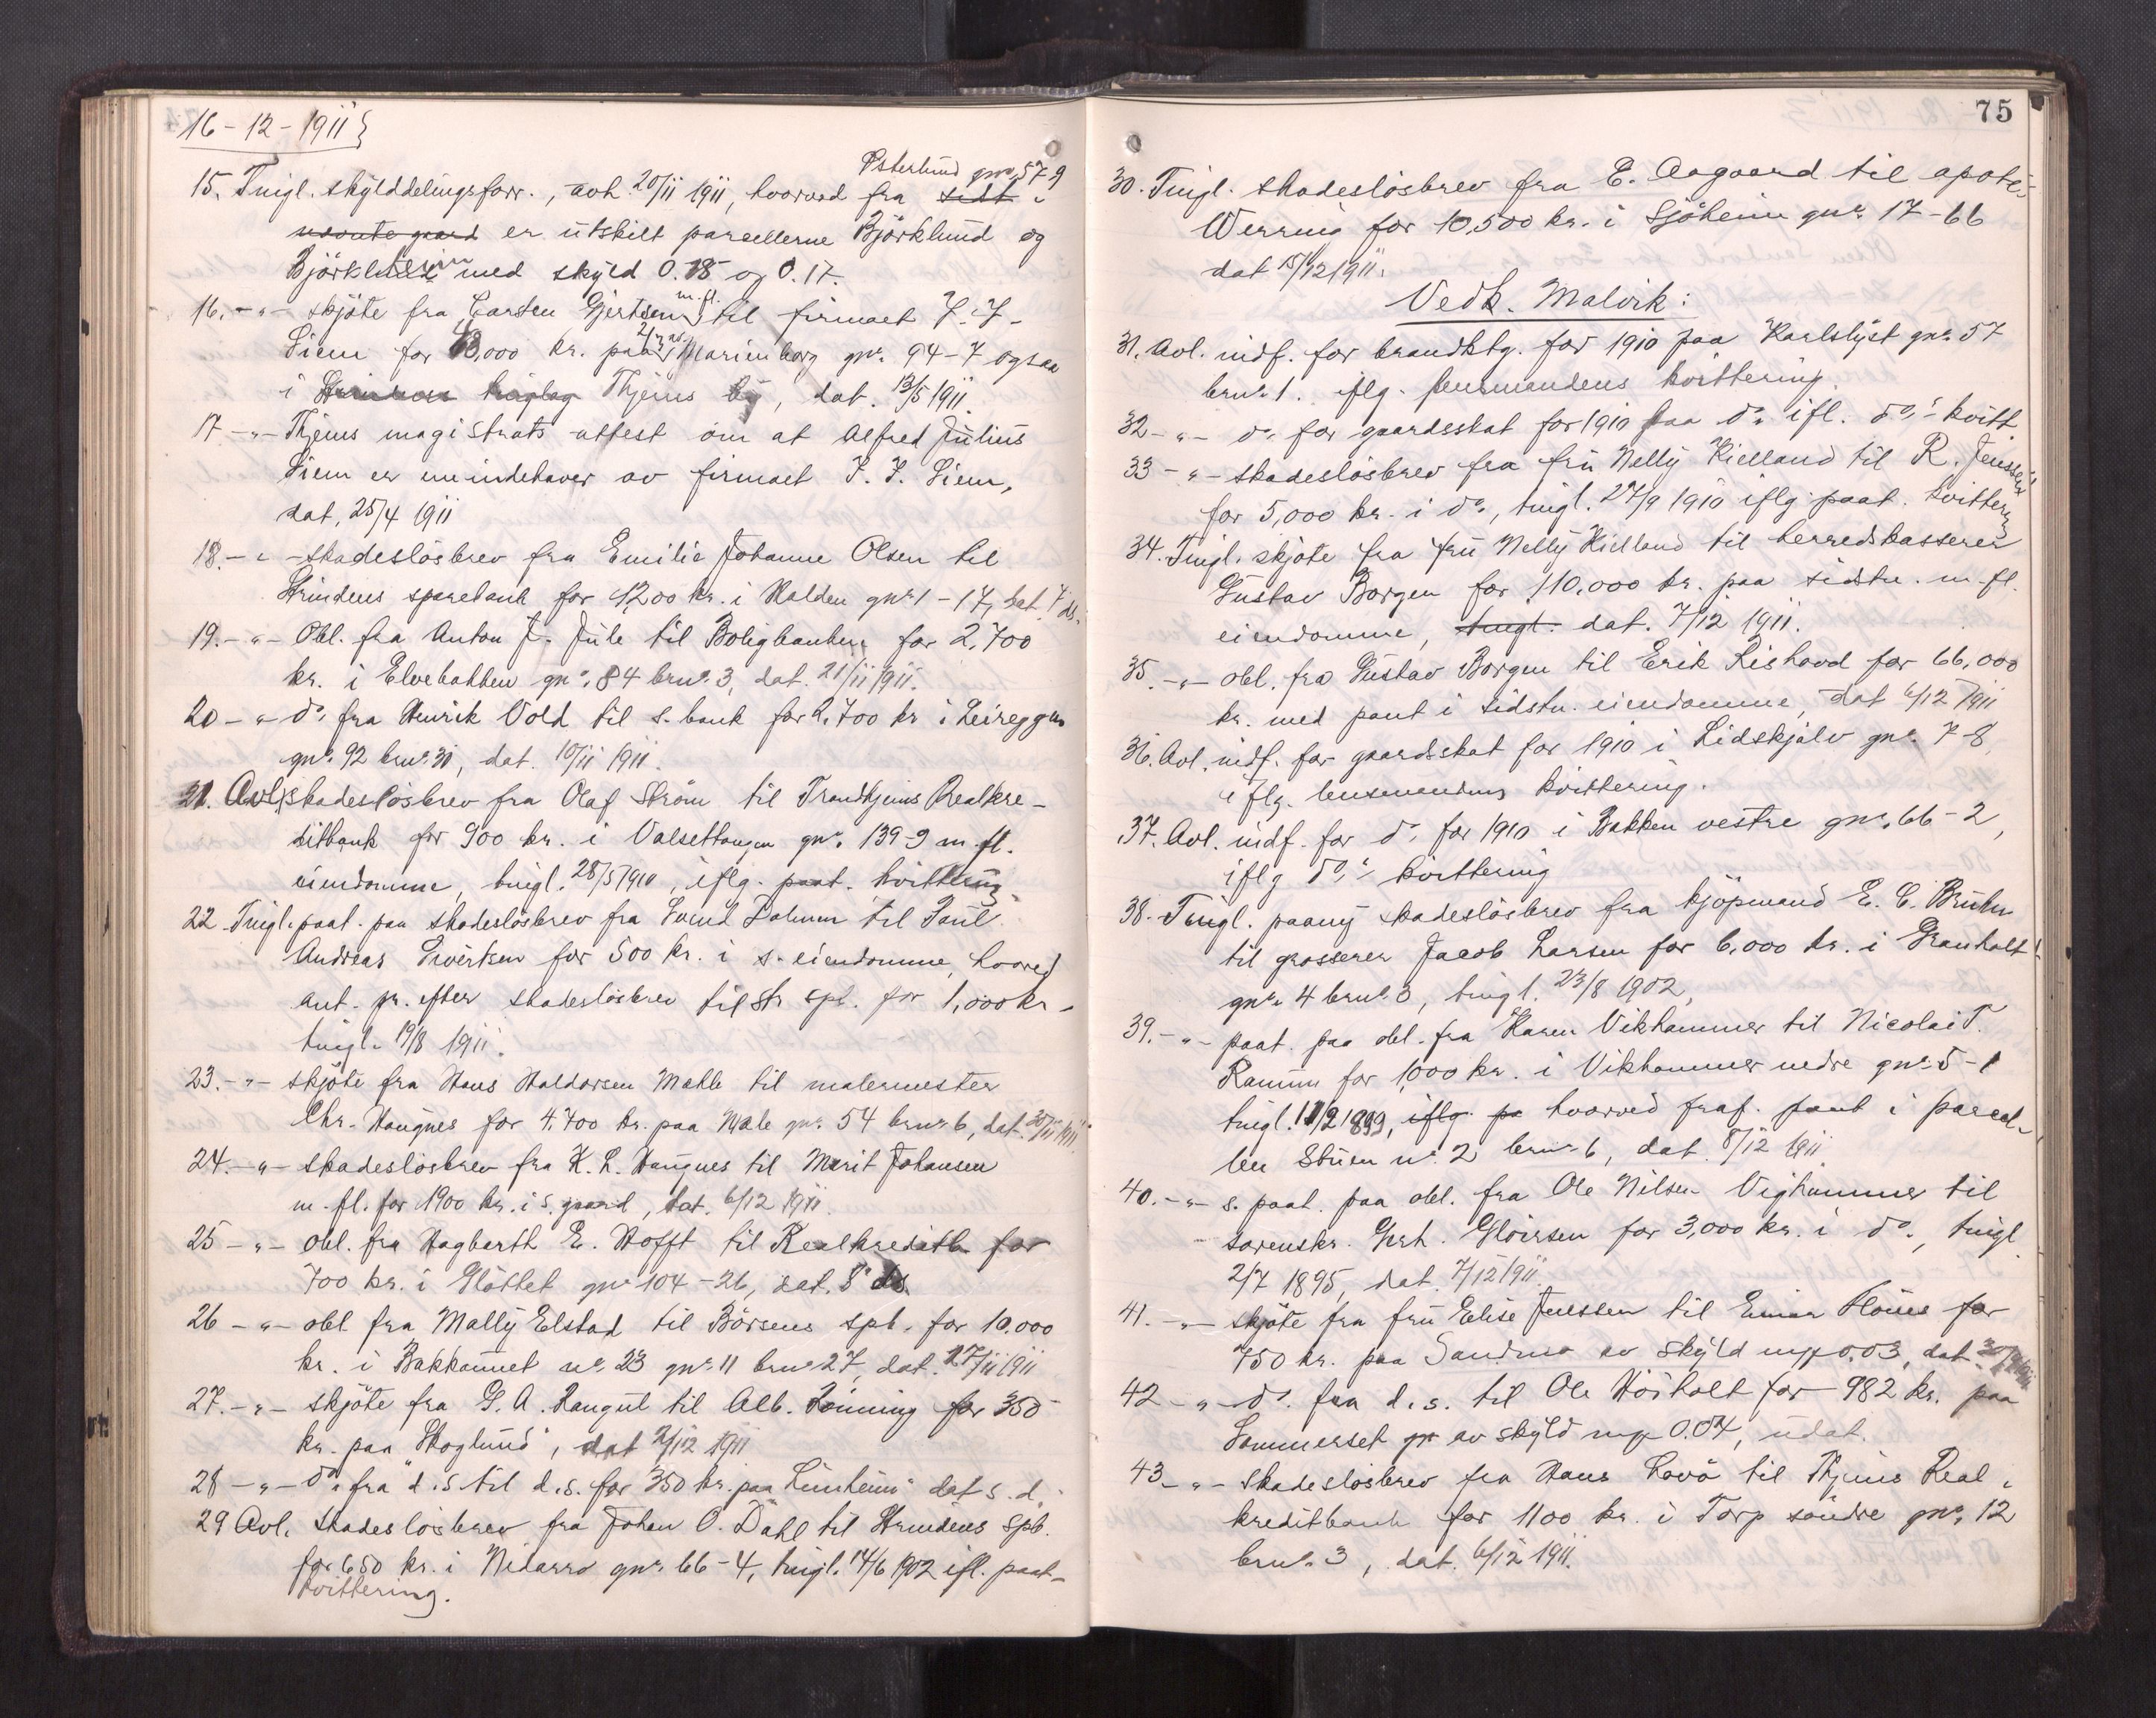 16-12-1911
Østerlund gnr. 57-9
15. Tingl. skylddelingsforr., avh. 20/11 1911, hvorved fra sidst-
nævnte gaard er utskilt parsellerne Björklund og
Björkheim med skyld 0.18 og 0.17.
16. -"- skjöte fra Carsten Gjertsen m.fl. til firmaet J. J.
Siem for 13,000 kr. paa 2/3 av Marienborg gnr. 94-7 ogsaa
i Thjems by, dat. 13/5 1911.
17 -"- Thjems magistrats attest om at Alfred Julius
Siem er eneindehaver av firmaet J. J. Siem,
dat. 25/4 1911
18. -"- skadeslösbrev fra Emilie Johanne Olsen til
Strindens sparebank for 1,200 kr. i Halden gnr. 1-17, dat. 7 ds.
19. -"- Obl. fra Anton J. Jule til Boligbanken for 2,700
kr. i Elvebakken gnr. 84 brnr. 3, dat. 21/11 1911.
20 -"- do. fra Henrik Vold til s. bank for 2,700 kr i Leireggen
gnr. 92 brnr. 31, dat. 10/11 1911.
21. Avl. skadeslösbrev fra Olaf Ström til Trondhjems Realkre-
ditbank for 900 kr. i Valsettangen gnr. 139-9 m.fl.
eiendomme, tingl. 28/5 1910, iflg. paat. kvittering.
22. Tingl. paat. paa skadeslösbrev fra til
Andreas for 500 kr. i s. eiendomme, hvorved
ant. pr. efter skadeslösbrev til Str. spb. for 1,000 kr.
tingl. 19/8 1911.
23. -"- skjöte fra Hans Haldorsen Mahle til malermester
Chr. Haugnes for 4,700 kr. paa Male gnr. 54 brnr. 6, dat. 30/11 1911
24. -"- skadeslösbrev fra K. L. Haugnes til Marit Johansen
m.fl. for 1900 kr. i s. gaard, dat. 6/12 1911.
25 -"- obl. fra Hagbarth E. Hofft til Realkreditb. for
700 kr. i Slöttet gnr. 104-26, dat. 8 ds.
26 -"- obl. fra Mally Elstad til Börsens spb. for 10,000
kr. i Bakkaunet nr. 23 gnr. 11 brnr. 27, dat. 27/11 1911
27. -"- skjöte fra G. A. Raugul til Alb. Lönning for 350
kr. paa "Skoglund", dat. 2/12 1911
28 -"- do. fra d.s. til d.s. for 350 kr. paa "Linheim" dat s.d.
29 Avl. skadeslösbrev fra Johan O. Dahl til Strindens spb.
for 650 kr. i Nidarro gnr. 66-4, tingl. 14/6 1902 ifl. paat.
kvittering.
75
30. Tingl. skadeslösbrev fra E. Aagaard til apote-
Werring for 10,500 kr. i Sjöheim gnr. 17-66
dat 15/12 1911.
Vedk. Malvik:
31. Avl. indf. for brandktg. for 1910 paa Karlslyst gnr. 57
brnr. 1. iflg. lensmandens kvittering.
32 -"- do. for gaardsskat for 1910 paa do. ifl. do.s kvitt
33 -"- skadeslösbrev fra fru Nelly Kielland til R. Jenssen
for 5,000 kr. i do., tingl. 27/9 1910 iflg. paat. kvittering
34. Tingl. skjöte fra fru Nelly Kielland til herredskasserer
Gustav Borgen for 110,000 kr. paa sidstn. m.fl.
eiendomme, tingl. dat. 7/12 1911.
35. -"- obl. fra Gustav Borgen til Erik Lishovd for 66,000
kr. med pant i sidstn. eiendomme, dat 6/12 1911
36. Avl. indf. for gaardsskat for 1910 i Lidskjalv gnr. 7-8,
iflg. lensmandens kvittering.
37. Avl. indf. for do. for 1910 i Bakken vestre gnr. 66-2,
iflg do.s kvittering
38. Tingl. paany skadeslösbrev fra kjöpmand E. C. Bruhn
til grosserer Jacob Larsen for 6,000 kr. i Granholt
gnr. 4 brnr. 3, tingl. 23/8 1902,
39. -"- paat. paa obl. fra Karen Vikhammer til Nicolai T.
Ramm for 1,000 kr. i Vikhammer nedre gnr. 5-1
tingl. 11/2 1899, iflg. pa hvorved fraf. pant i parcel-
len Stuen nr. 2 brnr. 6, dat. 8/12 1911
40. -"- s. paat. paa obl. fra Ole Nilsen Vighammer til
sorenskr. for 3,000 kr. i do., tingl.
2/7 1895, dat. 7/12 1911.
41. -"- skjöte fra fru Elise Jenssen til Einar for
750 kr. paa Sandmo av skyld mrk. 0.03, dat.
42 -"- do. fra d.s. til Ole Höiholt for 982 kr. paa
Sommerset gr av skyld mrk 0.04, udat.
43. -"- skadeslösbrev fra Hans Lovö til Thjems Real-
kreditbank for 1100 kr. i Torp söndre gnr. 12
brnr. 3, dat. 6/12 1911.